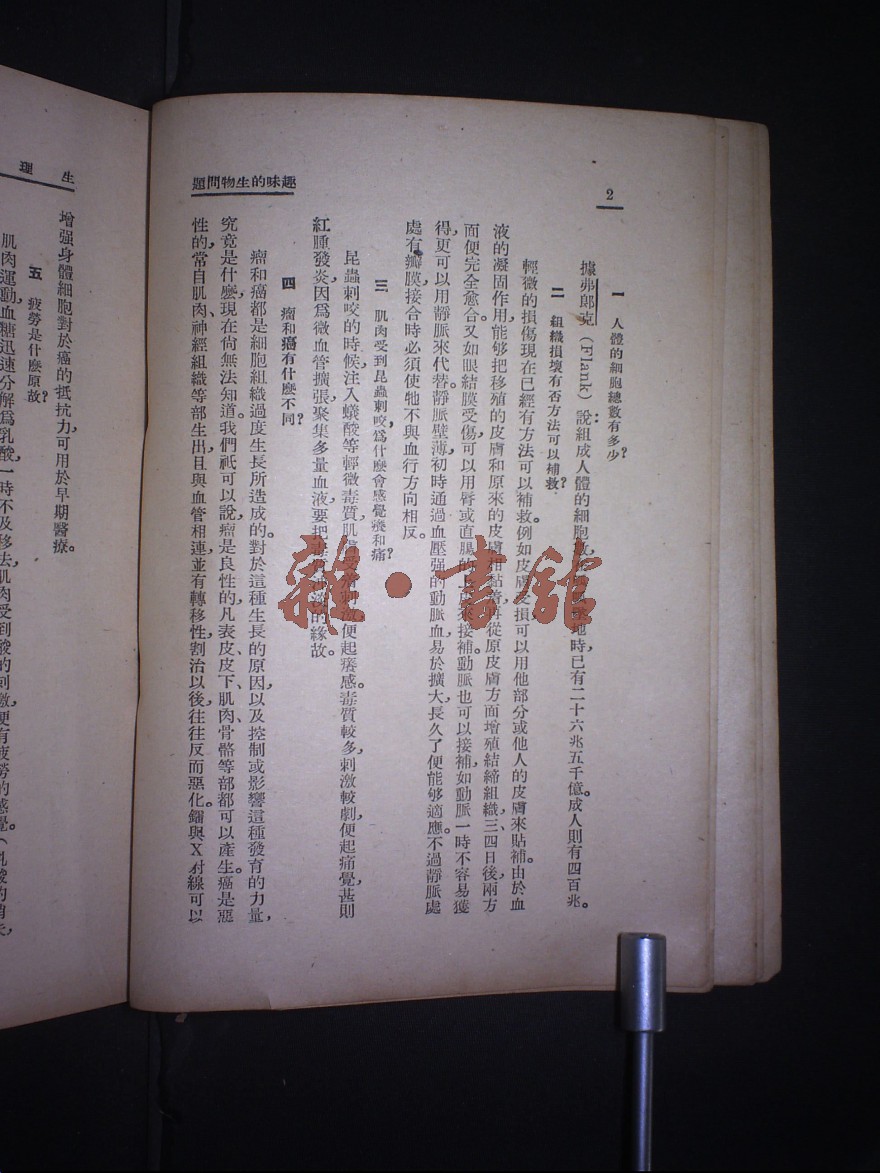 2
題問物生的味趣
一　人體的細胞總數有多少？
據弗郎克（Flank）說：組成人體的細胞，地時，已有二十六兆五千億。成人則有四百兆。
二　組織損壞有否方法可以補救？
輕微的損傷現在已經有方法可以補救。例如皮膚受損可以用他部分或他人的皮膚來貼補。由於血
液的凝固作用，能够把移殖的皮膚和原來的皮膚相黏着，再從原皮膚方面增殖結締組織，三、四日後，兩方
而便完全愈合。又如眼結膜受傷，可以用唇或直腸的上皮來接補。動脈也可以接補，如動脈一時不容易獲
得，更可以用靜脈來代替。靜脈壁薄，初時通過血壓强的動脈血，易於擴大，長久了便能够適應。不過靜脈處
處有瓣膜，接合時必須使牠不與血行方向相反。
三　肌肉受到昆蟲刺咬，爲什麼會感覺癢和痛？
昆蟲刺咬的時候，注入蟻酸等輕微毒質，肌膚受着刺激，便起癢感。毒質較多，刺激較劇，便起痛覺，甚則
紅腫發炎，因爲微血管擴張，聚集多量血液，要把毒質冲淡的緣故。
四　瘤和癌有什麼不同？
瘤和癌都是細胞組織過度生長所造成的。對於這種生長的原因，以及控制或影響這種發育的力量，
究竟是什麼，現在尙無法知道。我們祇可以說，瘤是良性的，凡表皮、皮下、肌肉、骨骼等部都可以產生。癌是惡
性的，常自肌肉、神經組織等部生出，且與血管相連，並有轉移性，割治以後，往往反而惡化。鐳與X射線可以
雜·書館
理　生
增强身體細胞對於癌的抵抗力，可用於早期醫療。
五　疲勞是什麼原故？
肌肉運動，血糖迅速分解爲乳酸，一時不及移去，肌肉受到酸的刺激，便有疲勞的感覺。（乳酸的消失，